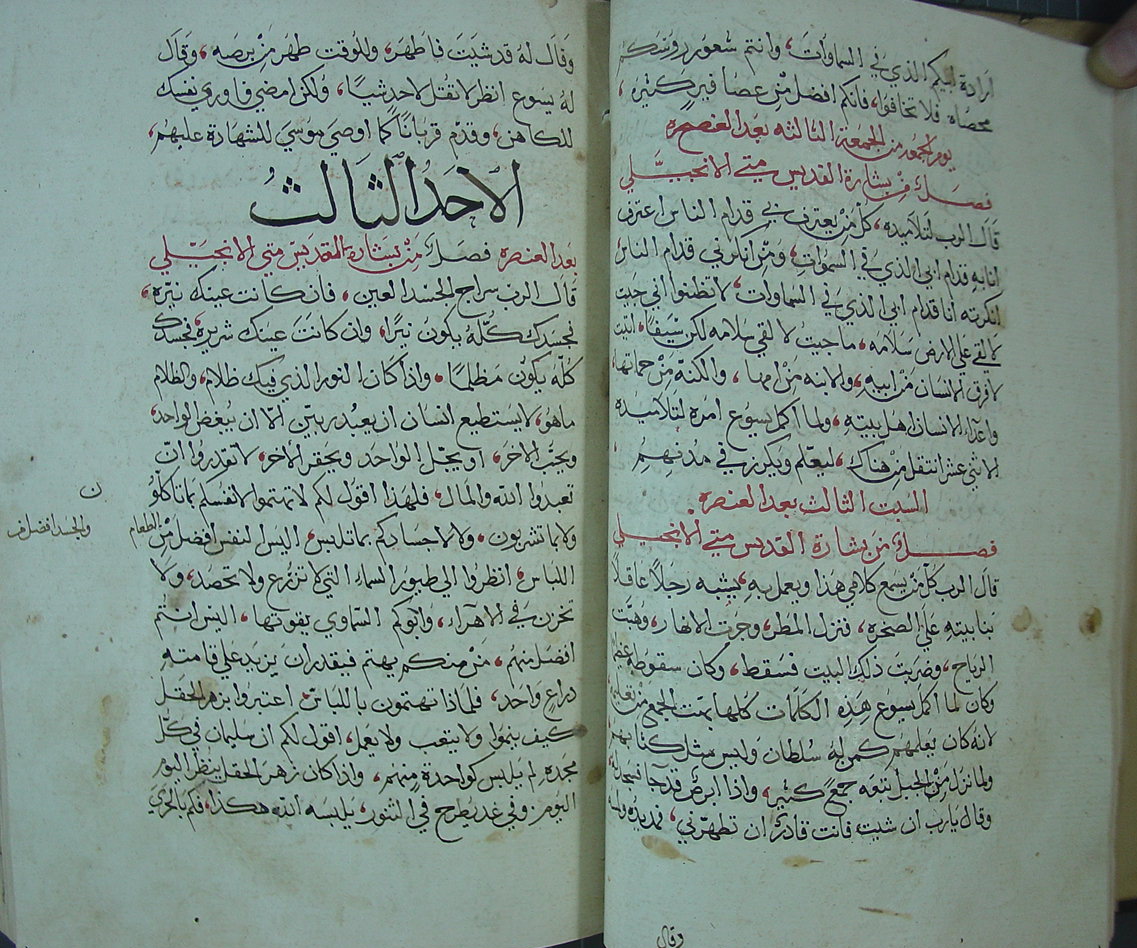 ارادة ابيكم الذي في السماوات، وانتم شعور رووسكم
محصاه فلا تخافوا، فانكم افضل من عصافير كثيره،
يوم الجمعه من الجمعة الثالثه بعد العنصره
فصلٌ من بشارة القديس متي الانجيلي
قال الرب لتلاميذه، كل من يعترف بي قدام الناس اعترف
انا به قدام ابي الذي في السموات، ومن انكرني قدام الناس
انكرته انا قدام ابي الذي في السماوات، لا تظنوا اني جيت
لالقي علي الارض سلامه، ما جيت لالقي سلامه لكن سيفا، اتيت
لافرق الانسان من ابيه، والابنه من امها، والكنة من حماتها،
واعدا الانسان اهل بيته، ولما اكمل يسوع امره لتلاميذه
الاثني عشر انتقل من هناك، ليعلم ويكرز في مدنهم،
السبت الثالث بعد العنصره
فصلٌ من بشارة القديس متي الانجيلي
قال الرب كل من يسمع كلامي هذا ويعمل به، يشبه رجلاً عاقلاً
بنا بيته علي الصخره، فنزل المطر، وجرت الانهار، وهبت
الرياح، وضربت ذلك البيت فسقط، وكان سقوطه عظيم
وكان لما اكمل يسوع هذه الكلمات كلها بهت الجمع من تعليمه
لانه كان يعلمهم كمن له سلطان وليس مثل كتابهم
ولما نزل من الجبل تبعه جمع كثير، واذا ابرص قد جا فسجد له
وقال يارب ان شيت فانت قادر ان تطهرني، فمد يده ولمسه
وقال
وقال له قد شيت فاطهر، وللوقت طهر من برصه، وقال
له يسوع انظر لا تقل لاحد شيا، ولكن امضي فاوري نفسك
للكاهن، وقدم قرباناً كما اوصي موسي للشهادة عليهم،
الاحد الثالث
بعد العنصره فصلٌ من بشارة القديس متي الانجيلي
قال الرب سراج الجسد العين، فان كانت عينك نيره،
فجسدك كله يكون نيرا، وان كانت عينك شريره، فجسدك
كله يكون مظلما، واذا كان النور الذي فيك ظلام، والظلام
ماهو، لا يستطيع انسان ان يعبد ربين الا ان يبغض الواحد،
ويحب الاخر، او يجل الواحد ويحقر الأخر، لا تقدروا ان
تعبدوا الله والمال، فلهذا اقول لكم لا تهتموا لانفسكم بما تاكلو
ولا بما تشربون، ولا لاجسادكم بما تلبس، اليس النفس افضل من
الطعام
والجسد افضل من
اللباس، انظروا الي طيور السماء التي لا تزرع ولا تحصد، ولا
تخزن في الاهراء، وابوكم السماوي يقوتها، اليس انتم
افضل منهم، من منكم يهتم فيقدر ان يزيد علي قامته
دراع واحد، فلماذا تهتمون باللباس، اعتبروا بزهر الحقل
كيف ينموا ولا يتعب ولا يعمل، اقول لكم ان سليمان في كل
مجده لم يلبس كواحدة منهم، واذا كان زهر الحقل ينظر اليوم
اليوم وفي غد يطرح في التنور، يلبسه الله هكذا، فكم بالحري